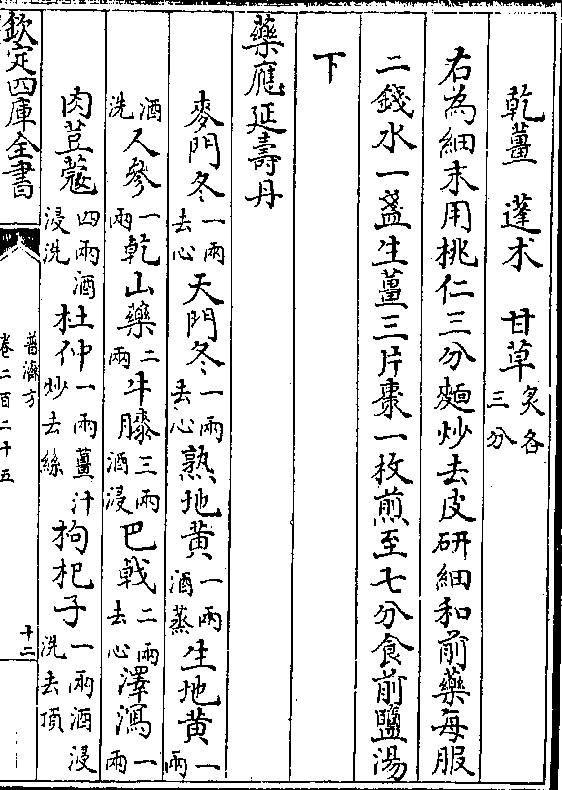 乾薑　蓬术　甘草炙各三分
右為細末用桃仁三分麵炒去皮研細和前藥每服
二錢水一盞生薑三片棗一枚煎至七分食前鹽湯
下
藥應延壽丹
麥門冬一兩去心天門冬一兩去心熟地黄一兩酒蒸生地黄一兩
酒洗人參一兩乾山藥二兩牛膝三兩酒浸巴戟二兩去心澤瀉一兩
肉荳蔻四兩酒浸洗杜仲一兩薑汁炒去絲枸杞子一兩酒浸洗去頂
欽定四庫全書
普濟方
卷二百二十五
十二